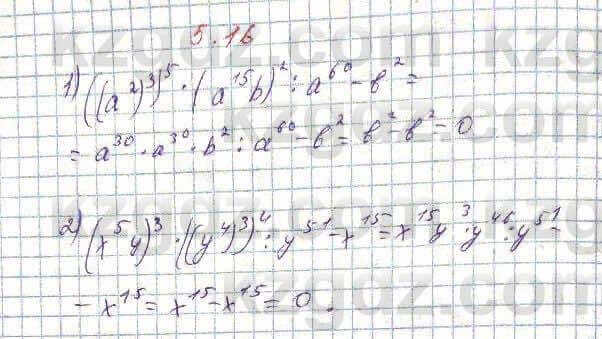 5.16
1) ((a²)³)⁵ · (a¹⁵b)² : a⁶⁰ - b² =
= a³⁰ · a³⁰ · b² : a⁶⁰ - b² = b² - b² = 0
2) (x⁵y)³ · ((y⁴)³)⁴ : y⁵¹ - x¹⁵ = x¹⁵y³ · y⁴⁸ : y⁵¹ -
- x¹⁵ = x¹⁵ - x¹⁵ = 0.
kzgdz.com